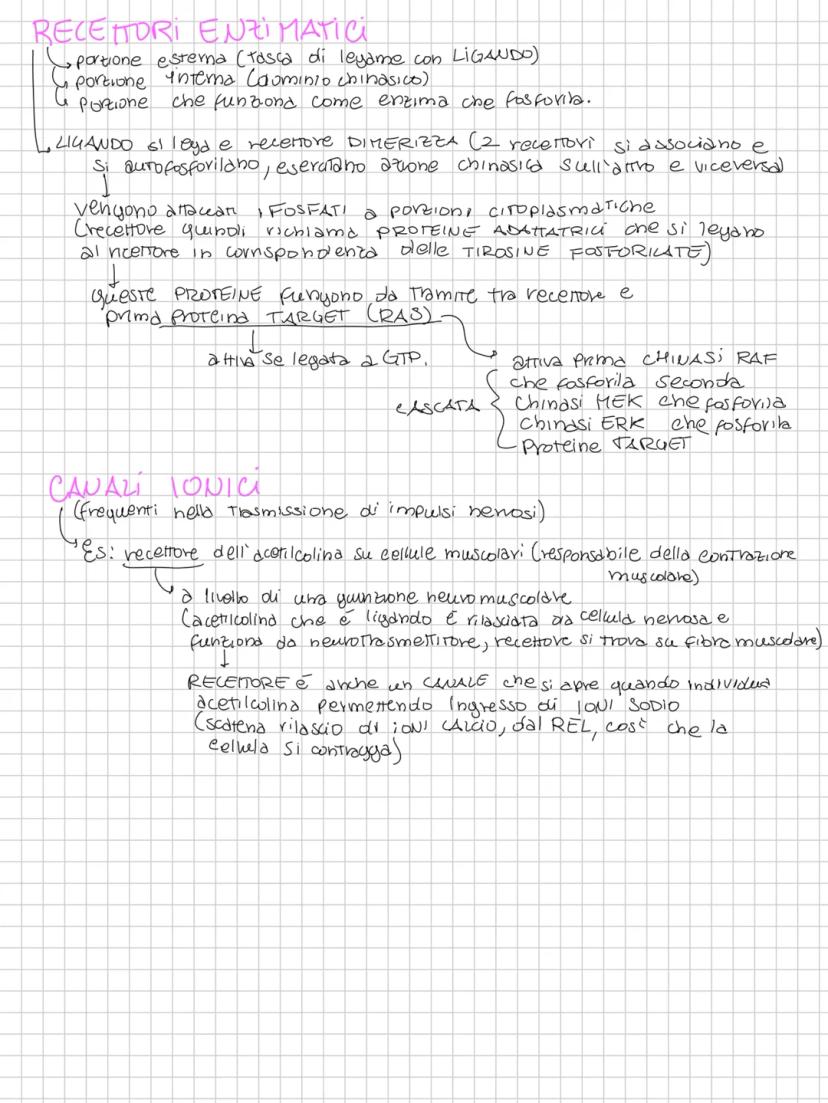 RECETTORI ENZIMATICI
portione esterna (tasca di legame con LIGANDO)
portione interna (dominio chinasico)
portione che funziona come enzima che fosforila.
LIGANDO si lega e recettore DIMERIZZA (2 recettori si associano e
si autofosforilano, esercitano azione chinasica sull'altro e viceversa)
vengono attaccati i FOSFATI a porzioni citoplasmatiche
(recettore quindi richiama PROTEINE ADATTATRICI che si legano
al recettore in corrispondenza delle TIROSINE FOSFORILATE)
queste PROTEINE fungono da tramite tra recettore e
prima proteina TARGET (RAS)
attiva se legata a GTP.
attiva prima CHINASI RAF
che fosforila seconda
CASCATA
chinasi MEK che fosforila
chinasi ERK che fosforila
Proteine TARGET
CANALI IONICI
(frequenti nella trasmissione di impulsi nervosi)
Es: recettore dell'acetilcolina su cellule muscolari (responsabile della contrazione
muscolare)
a livello di una giunzione neuromuscolare
(acetilcolina che é ligando é rilasciata da cellula nervosa e
funziona da neurotrasmettitore, recettore si trova su fibra muscolare)
RECETTORE é anche un CANALE che si apre quando individua
acetilcolina permettendo ingresso di IONI SODIO
(scatena rilascio di iONI CALCIO, dal REL, così che la
cellula si contragga)